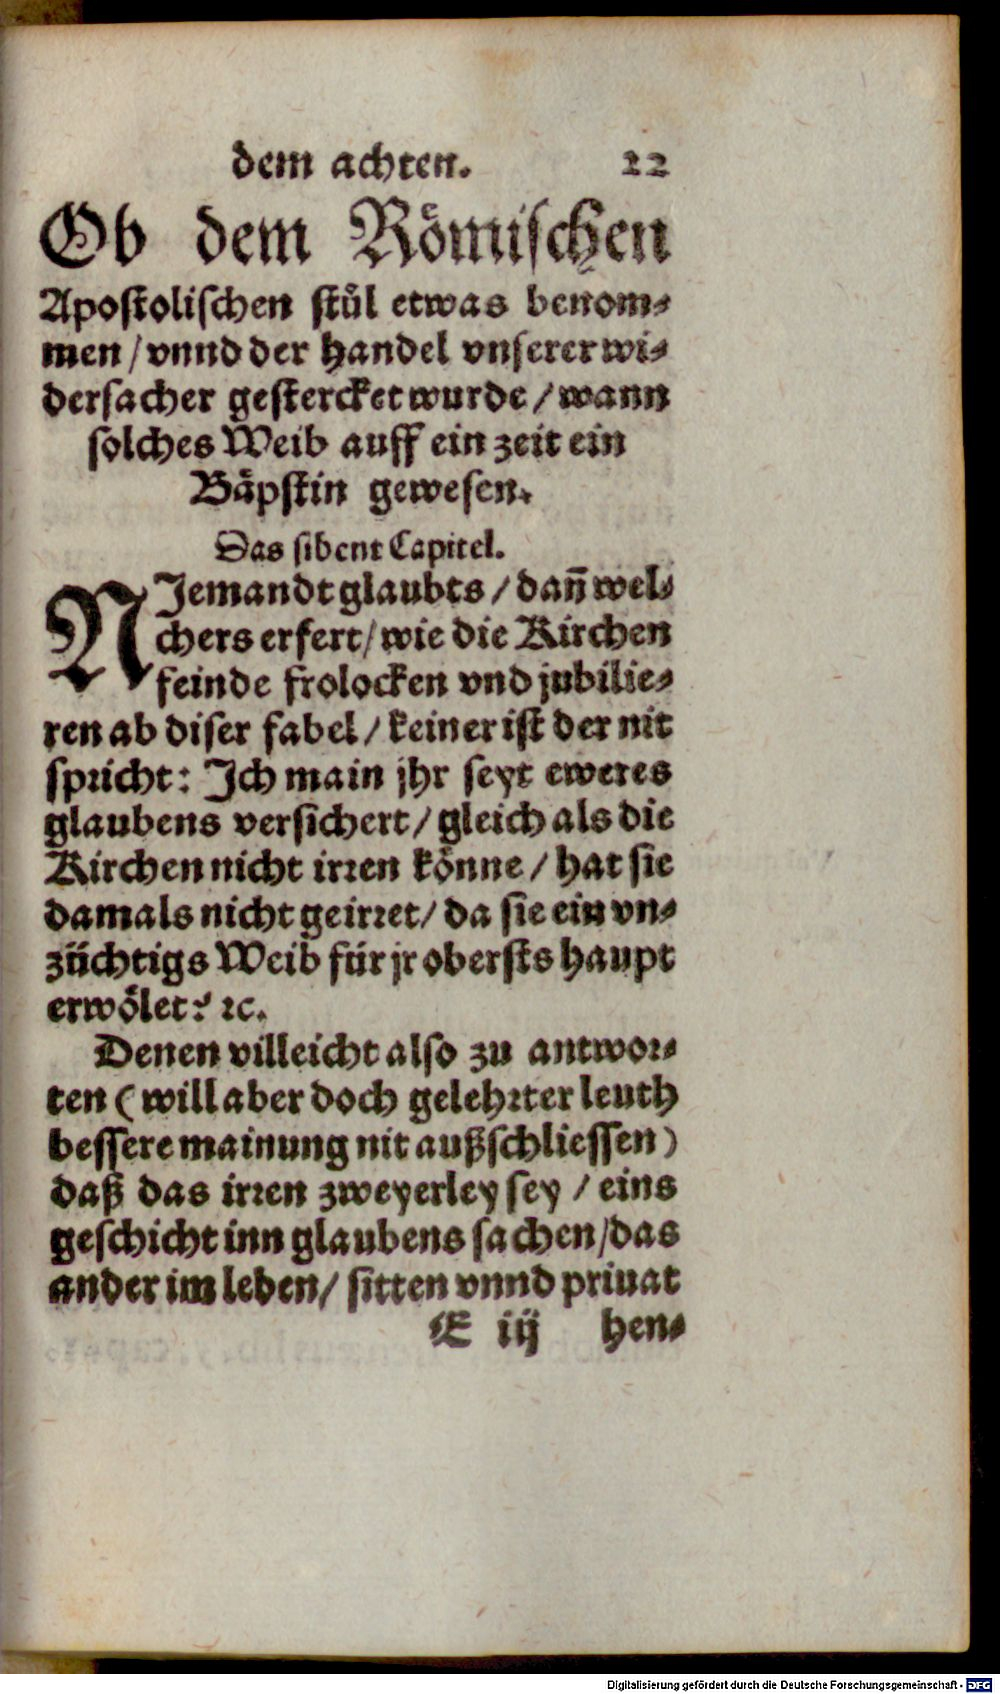 dem achten. 22
Ob dem Römischen
Apostolischen stůl etwas benom⸗
men / vnnd der handel vnserer wi⸗
dersacher gestercket wurde / wann
solches Weib auff ein zeit ein
Bäpstin gewesen.
Das sibent Capitel.
NJemandt glaubts / dañ wel⸗
chers erfert / wie die Kirchen
feinde frolocken vnd jubilie⸗
ren ab diser fabel / keiner ist der nit
spricht: Jch main jhr seyt eweres
glaubens versichert / gleich als die
Kirchen nicht irren könne / hat sie
damals nicht geirret / da sie ein vn⸗
züchtigs Weib für jr obersts haupt
erwölet? ꝛc.
Denen villeicht also zu antwor⸗
ten ( will aber doch gelehrter leuth
bessere mainung nit außschliessen )
daß das irren zweyerley sey / eins
geschicht inn glaubens sachen / das
ander im leben / sitten vnnd priuat
E iij hen⸗
Digitalisierung gefördert durch die Deutsche Forschungsgemeinschaft - DFG